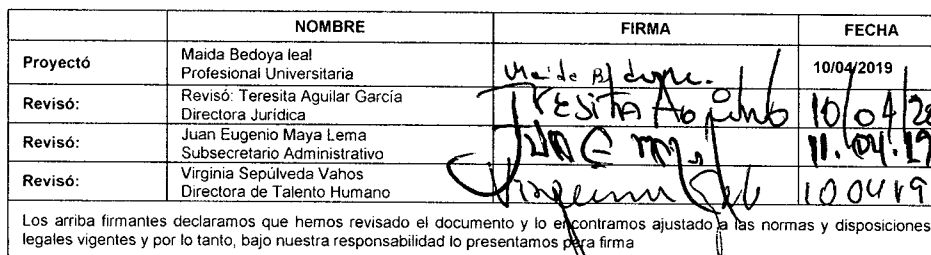 NOMBRE FIRMA FECHA
Proyectó Maida Bedoya leal
Profesional Universitaria Maida B 10/04/2019
Revisó: Revisó: Teresita Aguilar García
Directora Jurídica Teresita 10/04/20
Revisó: Juan Eugenio Maya Lema
Subsecretario Administrativo 11.04.19
Revisó: Virginia Sepúlveda Vahos
Directora de Talento Humano 10 04 19
Los arriba firmantes declaramos que hemos revisado el documento y lo encontramos ajustado a las normas y disposiciones
legales vigentes y por lo tanto, bajo nuestra responsabilidad lo presentamos para firma